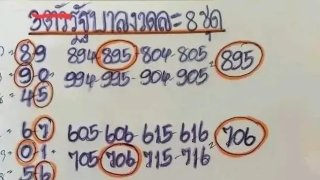 3ตัวรัฐบาลงวดละ 8 ชุด
= 89 894-895-804-805 = 895
= 90 994-995-904-905
= 45
= 67 605-606-615-616 = 706
= 01 705-706-715-716
= 56